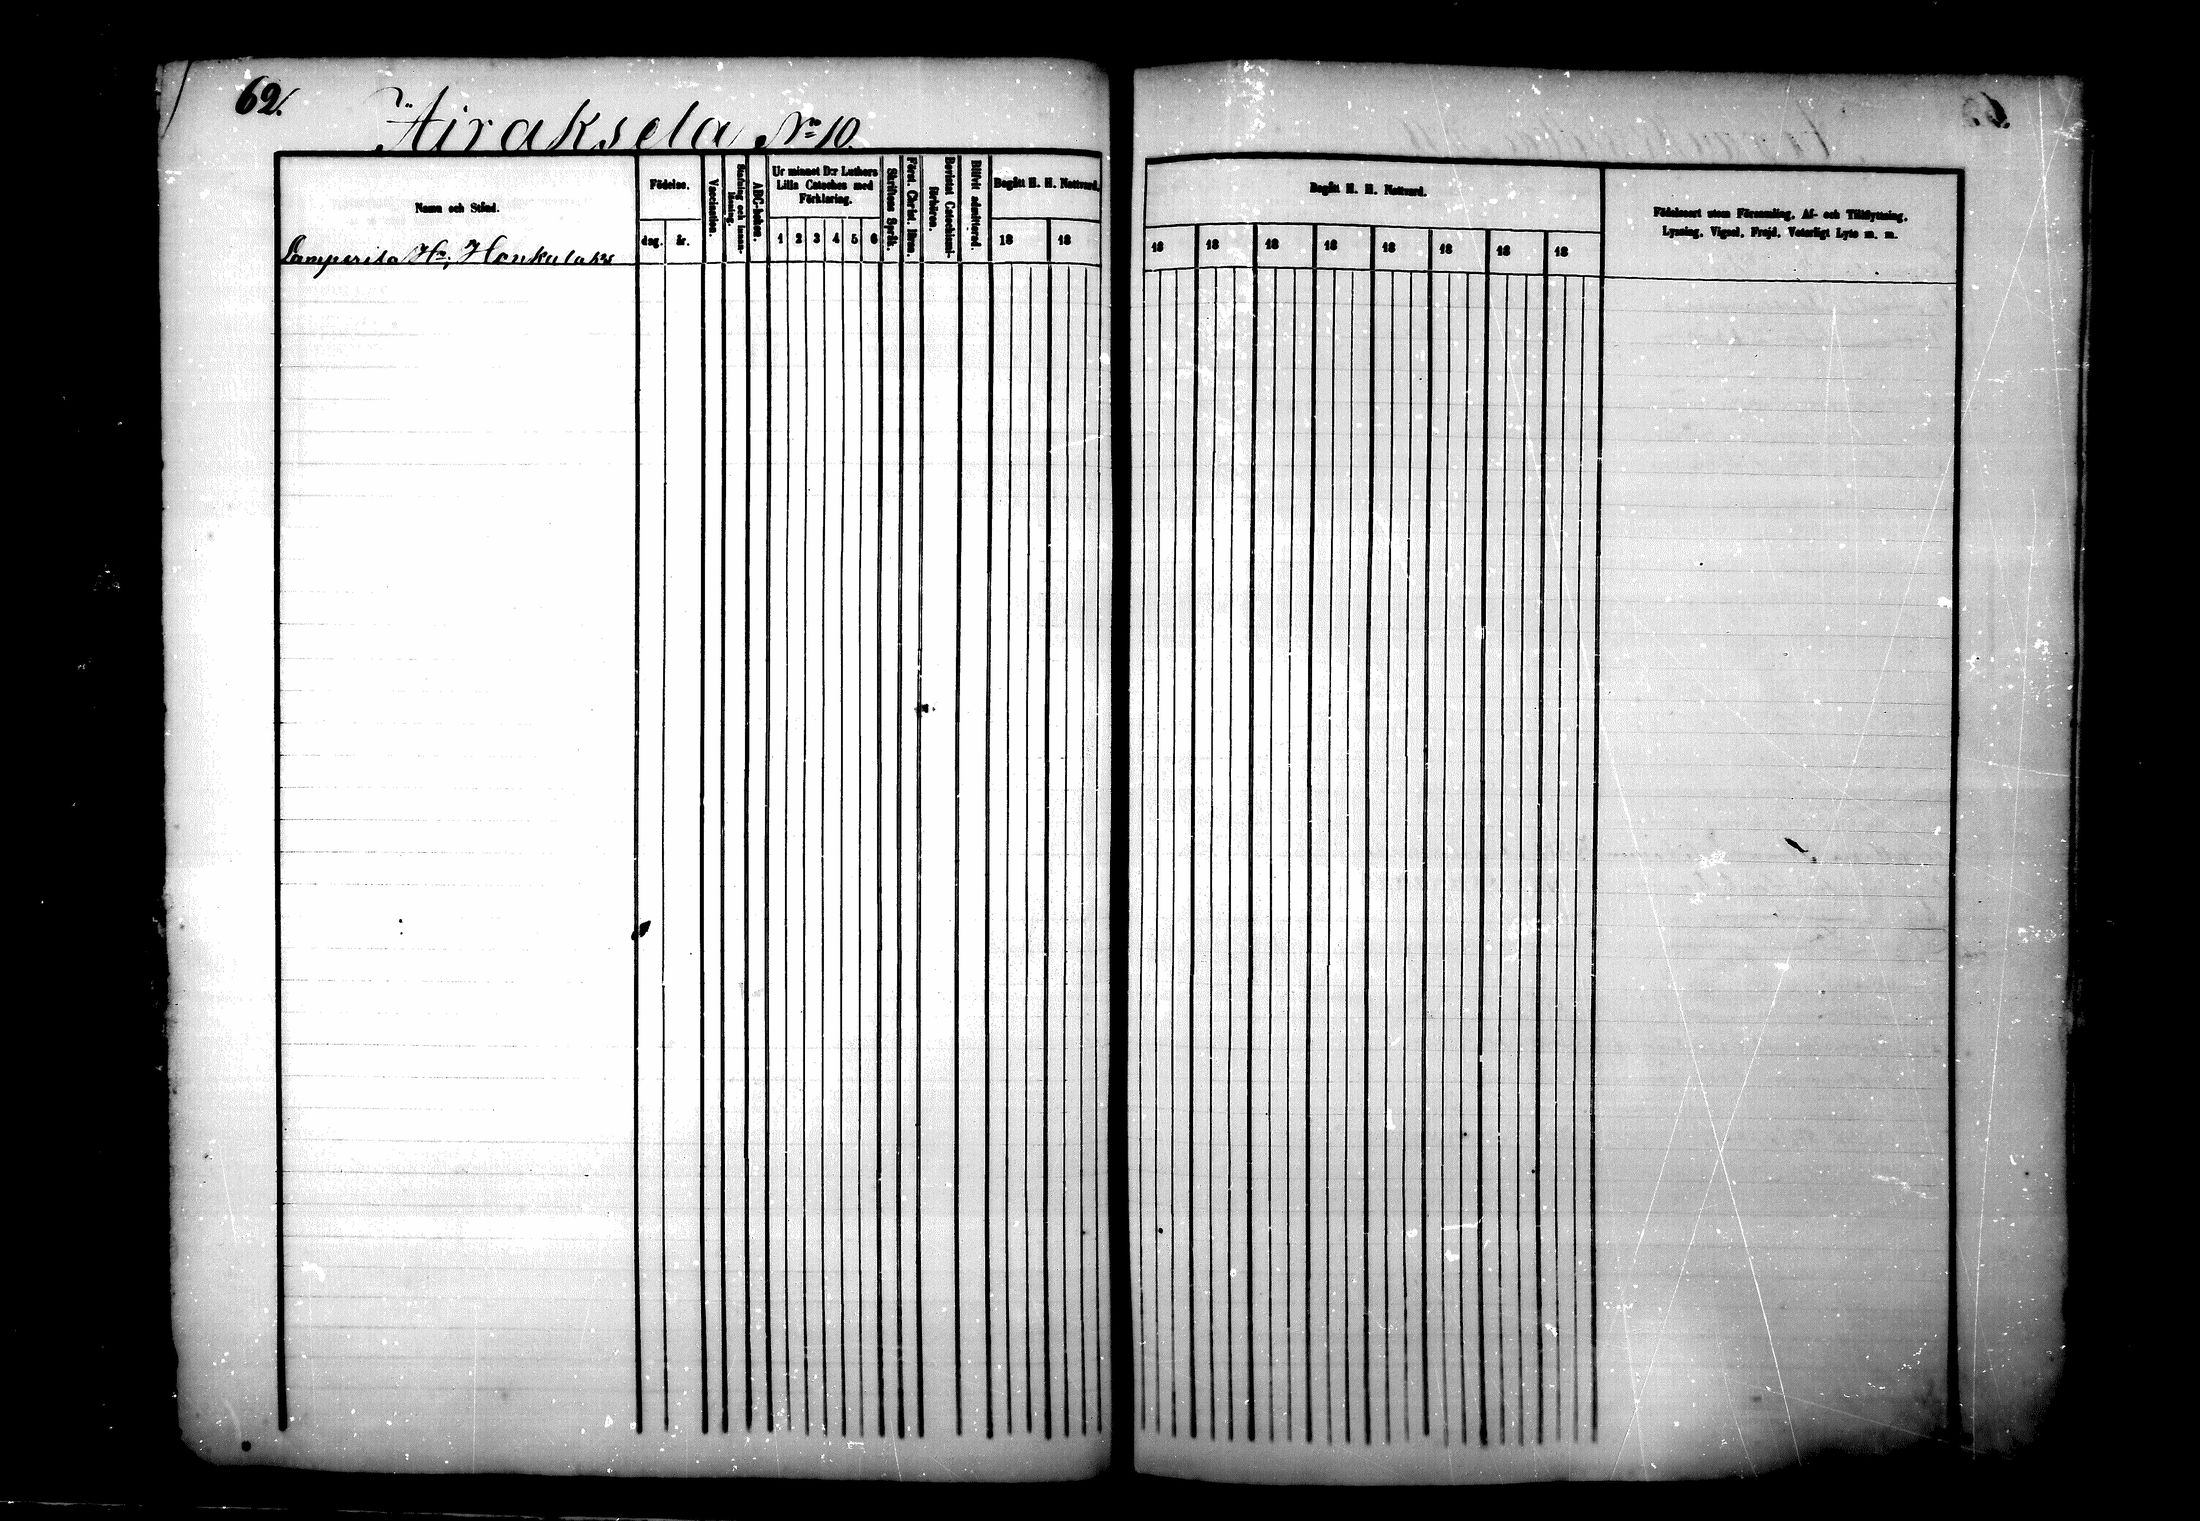 62.
Airaksela No 10.
Namn och Stånd.
Födelse.
dag.
år.
Vaccination.
Stafning och Innanläsning.
ABC-boken.
Ur minnet D:r Luthers
Lilla Cateches med
Förklaring.
1 2 3 4 5 6
Skriftens Språk.
Först. Christ. lären.
Bevistat Catechismiförhören.
Blifvit admitterad.
Begått H. H. Nattvard.
18 18
Lamperila Hn, Honkalaks
Begått H. H. Nattvard.
18 18 18 18 18 18 18 18
Födelseort utom Församling, Af- och Tillflyttning,
Lysning, Vigsel, Frejd, Veterligt Lyte m. m.